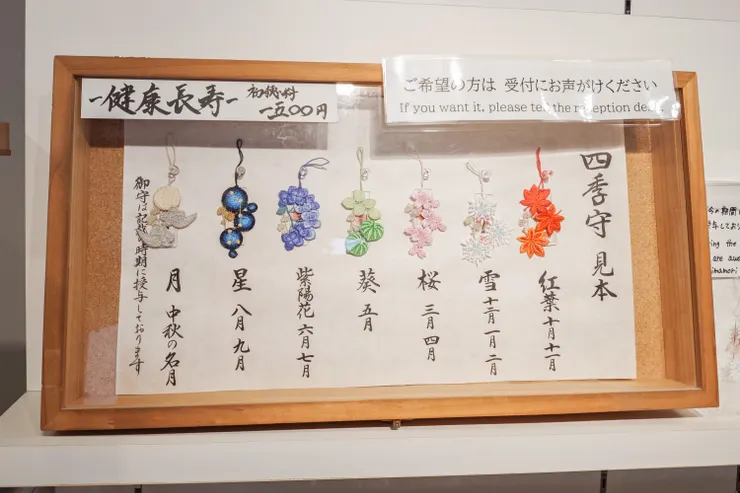 -健康長寿-
初穂料
一五〇〇円
ご希望の方は 受付にお声がけください
If you want it, please tell the reception desk.
四季守 見本
紅葉 十月 十一月
雪 十二月 一月 二月
桜 三月 四月
葵 五月
紫陽花 六月 七月
星 八月 九月
月 中秋の名月
御守は記載の時期に授与しております